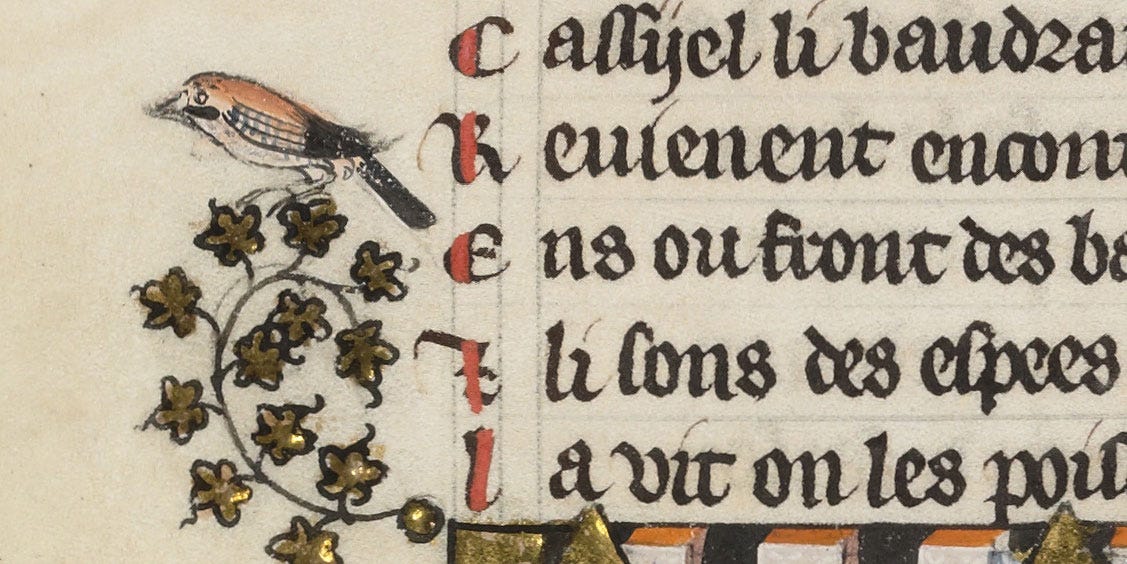 Cassyel li baudrai
Reuienent encont
Ens ou front des ba
Et li sons des espees
La vit on les pois